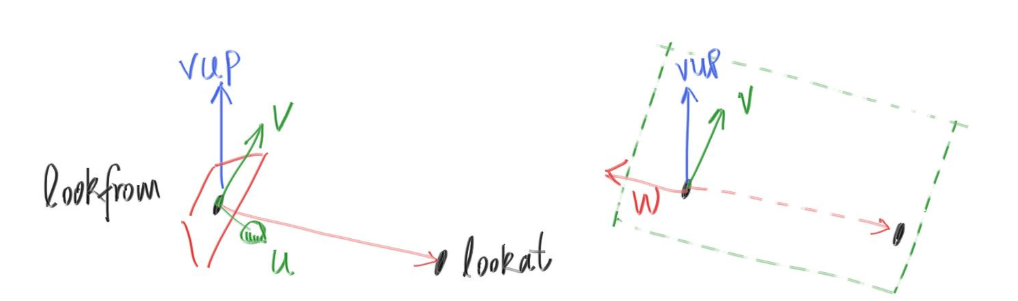 vup
v
lookfrom
u
lookat
vup
v
w